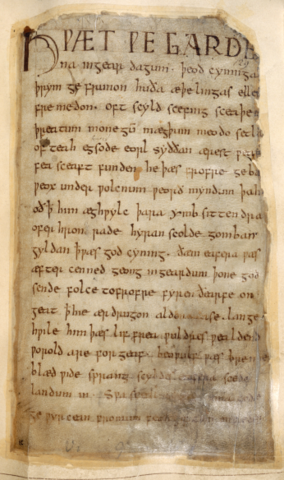 HǷÆT ǷE GARDE
na ingear dagum · þeod cyninga
þrym ge frunon huða æþelingas elle
fre medon · oft scyld scefing sceaþe
þreatum monegū mægþum meodo setl
of teah egsode eorl syððan ærest ƿear
fea sceaft funden he þæs frofre geba
ƿeox under ƿolcnum ƿeorð myndum þah
oð þ̄ him æghƿylc þara ymb sittendra
ofer hron rade hyran scolde gomban
gyldan þ̄ ƿæs god cyning · ðæm eafera ƿæs
æfter cenned geong ingeardum þone god
sende folce tofrofre fyren ðearfe on
geat þ̄ hie ær drugon aldor ase · lange
hƿile him þæs lif frea ƿuldres ƿealdend
ƿorold are forgeaf · beoƿulf ƿæs breme
blæd ƿide sprang scyldes eafera scede
landum in · Sƿa sceal uma gode
ge ƿyrcean fromum feoh giftum